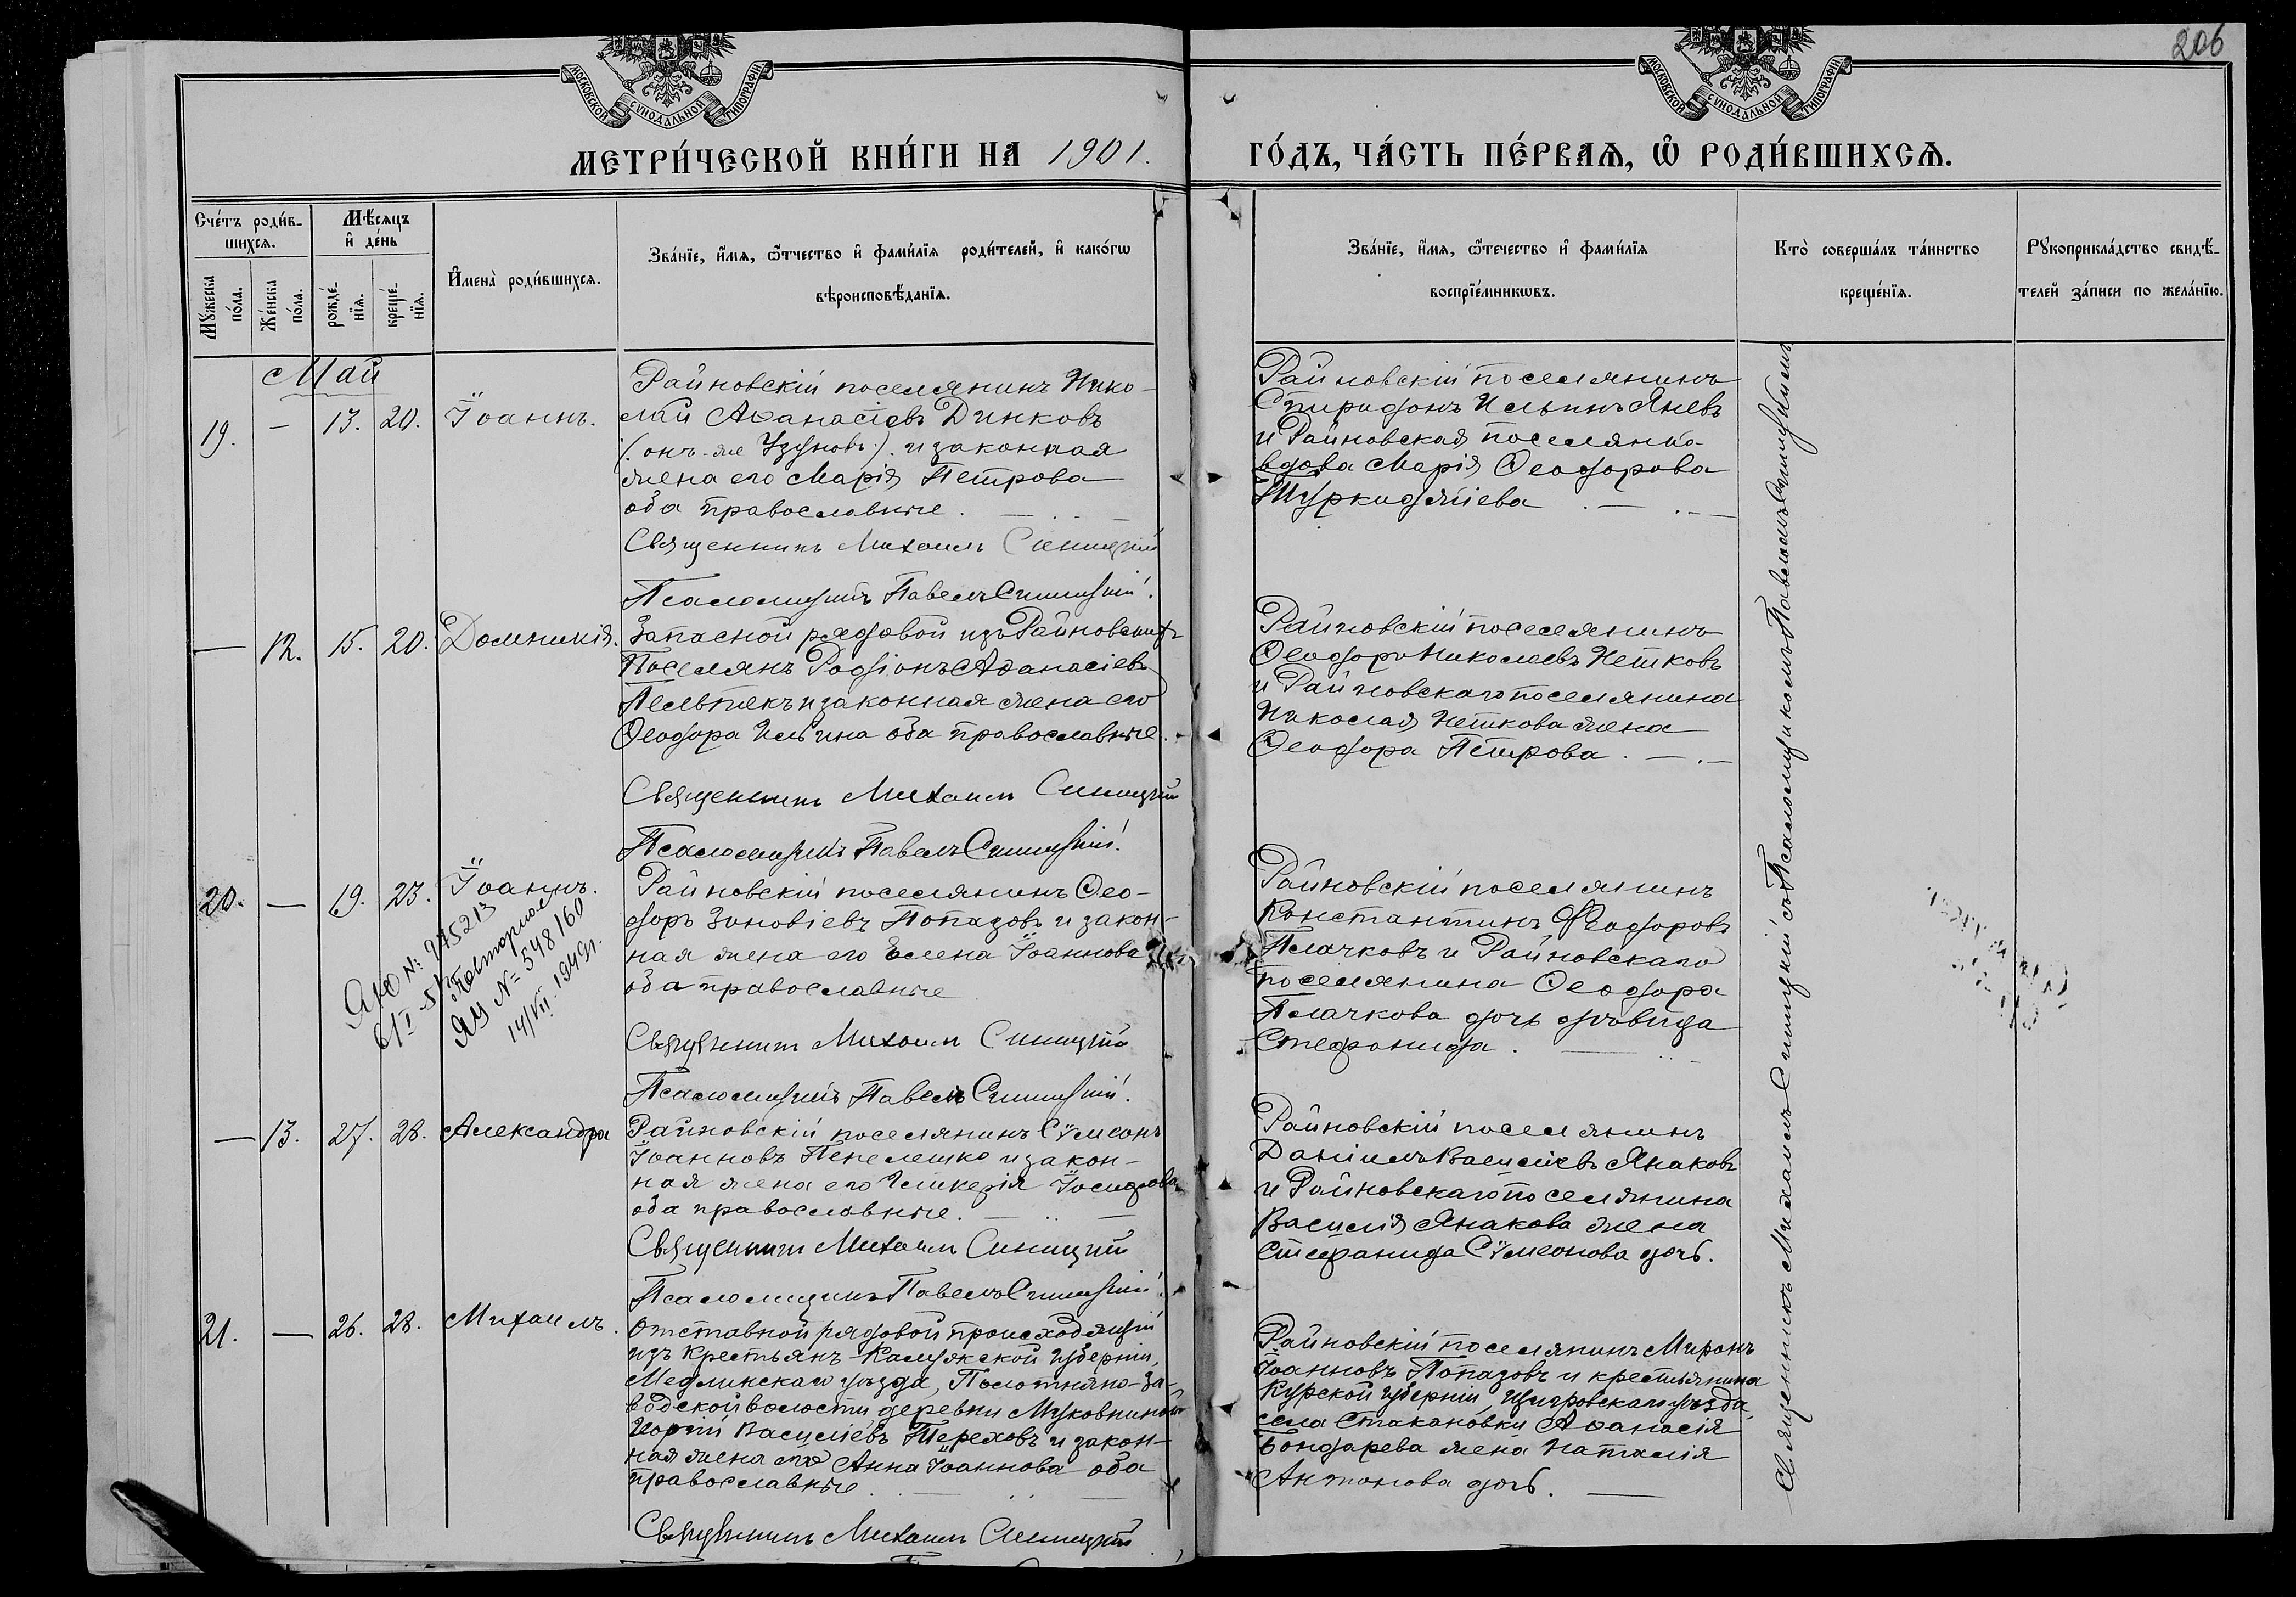 206
МОСКОВСКОЙ СѴНОДАЛЬНОЙ ТИПОГРАФІИ
МОСКОВСКОЙ СѴНОДАЛЬНОЙ ТИПОГРАФІИ
МЕТРИ́ЧЕСКОЙ КНИ́ГИ НА 1901.
ГО́ДЪ, ЧА́СТЬ ПЕ́РВАѦ, Ѡ РОДИ́ВШИХСѦ.
Сче́тъ роди́в-
шихсѧ.
Мꙋ́жеска
по́ла.
Же́нска
по́ла.
Мѣ́сѧцъ
и де́нь
рожде́-
нїѧ.
креще́-
нїѧ.
Имена̀ роди́вшихсѧ.
Зва́нїе, и́мѧ, ѻ́тчество и фами́лїѧ роди́телей, и како́гѡ
вѣроисповѣ́данїѧ.
Зва́нїе, и́мѧ, ѻ́течество и фами́лїѧ
воспрїе́мникѡвъ.
Кто̀ соверша́лъ та́инство
креще́нїѧ.
Рꙋкоприкла́дство свидѣ́-
телей за́писи по жела́нїю.
Май
19. — 13. 20. Іоаннъ.
Райновскій поселянинъ Нико-
лай Аѳанасіевъ Динковъ
(онъ-же Узуновъ) и законная
жена его Марія Петрова
оба православные.
Священникъ Михаилъ Синицкій
Псаломщикъ Павелъ Синицкій.
Райновскій поселянинъ
Спиридонъ Ильинъ Яневъ
и Райновская поселянка
вдова Марія Ѳеодорова
— 12. 15. 20. Домникія.
Запасной рядовой изъ Райновскихъ
Поселянъ Родіонъ Аѳанасіевъ
Пельтекъ и законная жена его
Ѳеодора Ильина оба православные.
Священникъ Михаилъ Синицкій
Псаломщикъ Павелъ Синицкій.
Райновскій поселянинъ
Ѳеодоръ Николаевъ Нетковъ
и Райновскаго поселянина
Николая Неткова жена
Ѳеодора Петрова.
20. — 19. 23. Іоаннъ.
ЯЮ № 975213
Повторном
ЯЦ № 548160
14/VII. 1949г.
Райновскій поселянинъ Ѳео-
доръ Зиновіевъ Попазовъ и закон-
ная жена его Елена Іоаннова
оба православные
Священникъ Михаилъ Синицкій
Псаломщикъ Павелъ Синицкій.
Райновскій поселянинъ
Константинъ Ѳеодоровъ
Плачковъ и Райновскаго
поселянина Ѳеодора
Плачкова дочь дѣвица
Стефанида.
— 13. 27. 28. Александра
Райновскій поселянинъ Сѵмеонъ
Іоанновъ Пепелешко и закон-
ная жена его Гликерія Іосифова
оба православные.
Священникъ Михаилъ Синицкій
Псаломщикъ Павелъ Синицкій.
Райновскій поселянинъ
Даніилъ Василіевъ Янаковъ
и Райновскаго поселянина
Василія Янакова жена
Стефанида Сѵмеонова дочь.
21. — 26. 28. Михаилъ.
Отставной рядовой происходящій
изъ крестьянъ Калужской губерніи,
Медынскаго уѣзда, Полотняно-За-
водской волости деревни Муковниной
Георгій Василіевъ Тереховъ и закон-
ная жена его Анна Іоаннова оба
православные.
Священникъ Михаилъ Синицкій
Райновскій поселянинъ Миронъ
Іоанновъ Попазовъ и крестьянина
Курской губерніи, Щигровскаго уѣзда
села Стакановки Аѳанасія
Бондарева жена Наталія
Антонова дочь.
Священникъ Михаилъ Синицкій съ Псаломщикомъ Павломъ Синицкимъ